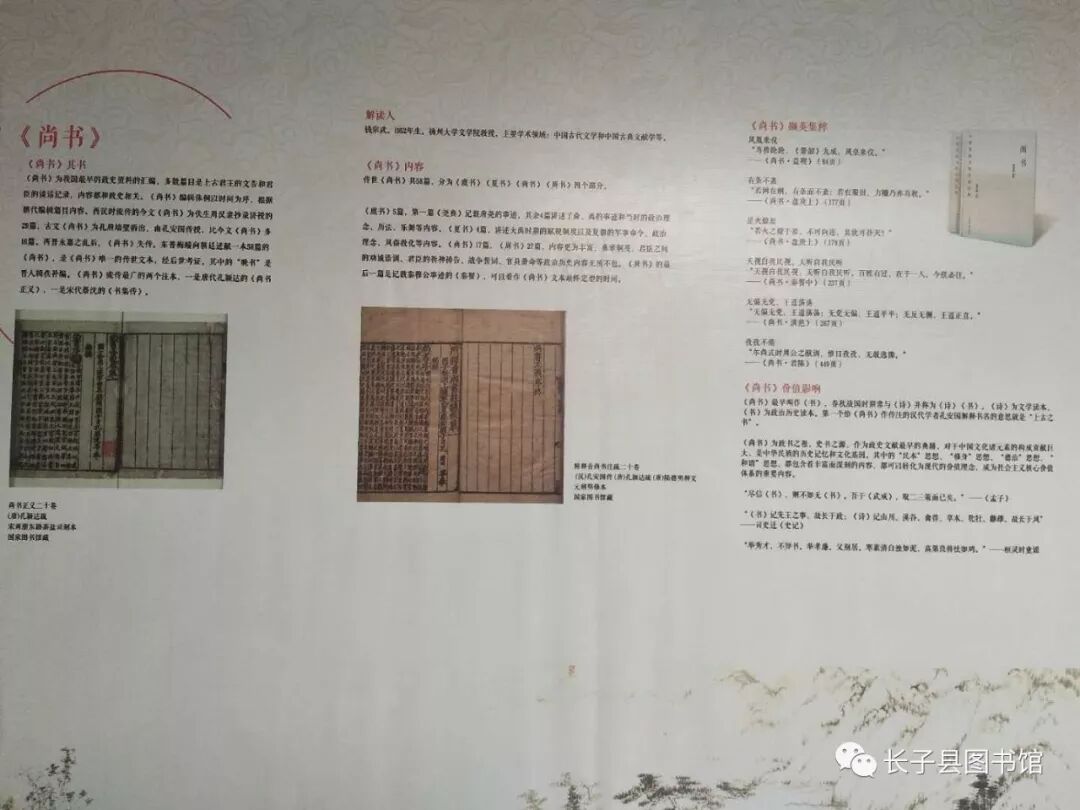 《尚书》
《尚书》其书
《尚书》为我国最早的政史资料的汇编，多数篇目是上古君王的文告和君
臣的谈话记录，内容都和政史相关。《尚书》编辑体例以时间为序，根据
朝代编辑篇目内容。西汉时流传的今文《尚书》为伏生用汉隶抄录讲授的
29篇，古文《尚书》为孔府墙壁所出，由孔安国传授，比今文《尚书》多
16篇。西晋永嘉之乱后，《尚书》失传，东晋梅赜向朝廷进献一本58篇的
《尚书》，是《尚书》唯一的传世文本，经后世考证，其中的“晚书”是
晋人辑佚补编。《尚书》流传最广的两个注本，一是唐代孔颖达的《尚书
正义》，一是宋代蔡沈的《书集传》。
尚书正义二十卷
(唐)孔颖达疏
宋两浙东路茶盐司刻本
国家图书馆藏
解读人
钱宗武，1952年生，扬州大学文学院教授，主要学术领域：中国古代文学和中国古典文献学等。
《尚书》内容
传世《尚书》共58篇，分为《虞书》《夏书》《商书》《周书》四个部分。
《虞书》5篇，第一篇《尧典》记载尧舜的事迹，其余4篇讲述了舜、禹的事迹和当时的政治理
念、刑法、乐舞等内容。《夏书》4篇，讲述大禹时期的赋税制度以及夏朝的军事命令、政治
理念、风俗教化等内容。《商书》17篇，《周书》32篇，内容更为丰富，典章制度、君臣之间
的劝诫告训、君臣的祈神祷告、战争誓词、官员册命等政治历史内容无所不包。《周书》的最
后一篇是记载秦穆公事迹的《秦誓》，可以看作《尚书》文本最终定型的时间。
附释音尚书注疏二十卷
(汉)孔安国传 (唐)孔颖达疏 (唐)陆德明释文
元刻明修本
国家图书馆藏
《尚书》撷英集粹
凤凰来仪
“鸟兽跄跄，《箫韶》九成，凤皇来仪。”
——《尚书·益稷》(84页)
有条不紊
“若网在纲，有条而不紊；若农服田，力穑乃亦有秋。”
——《尚书·盘庚上》(177页)
星火燎原
“若火之燎于原，不可向迩，其犹可扑灭？”
——《尚书·盘庚上》(179页)
天视自我民视，天听自我民听
“天视自我民视，天听自我民听。百姓有过，在予一人，今朕必往。”
——《尚书·泰誓中》(237页)
无偏无党，王道荡荡
“无偏无党，王道荡荡；无党无偏，王道平平；无反无侧，王道正直。”
——《尚书·洪范》(267页)
孜孜不倦
“尔尚式时周公之猷训，惟日孜孜，无敢逸豫。”
——《尚书·君陈》(449页)
尚书
《尚书》价值影响
《尚书》最早叫作《书》，春秋战国时期常与《诗》并称为《诗》《书》，《诗》为文学读本，
《书》为政治历史读本。第一个给《尚书》作传注的汉代学者孔安国解释书名的意思就是“上古之
书”。
《尚书》为政书之祖，史书之源。作为政史文献最早的典籍，对于中国文化诸元素的构成贡献巨
大，是中华民族的历史记忆和文化基因。其中的“民本”思想、“修身”思想、“德治”思想、“
和谐”思想，都包含着丰富而深刻的内容，都可以转化为现代的价值理念，成为社会主义核心价值
体系的重要内容。
“尽信《书》，则不如无《书》。吾于《武成》，取二三策而已矣。”——《孟子》
“《书》记先王之事，故长于政；《诗》记山川、溪谷、禽兽、草木、牝牡、雌雄，故长于风”
——司史迁《史记》
“举秀才，不知书。举孝廉，父别居。寒素清白浊如泥，高第良将怯如鸡。”——桓灵时童谣
长子县图书馆